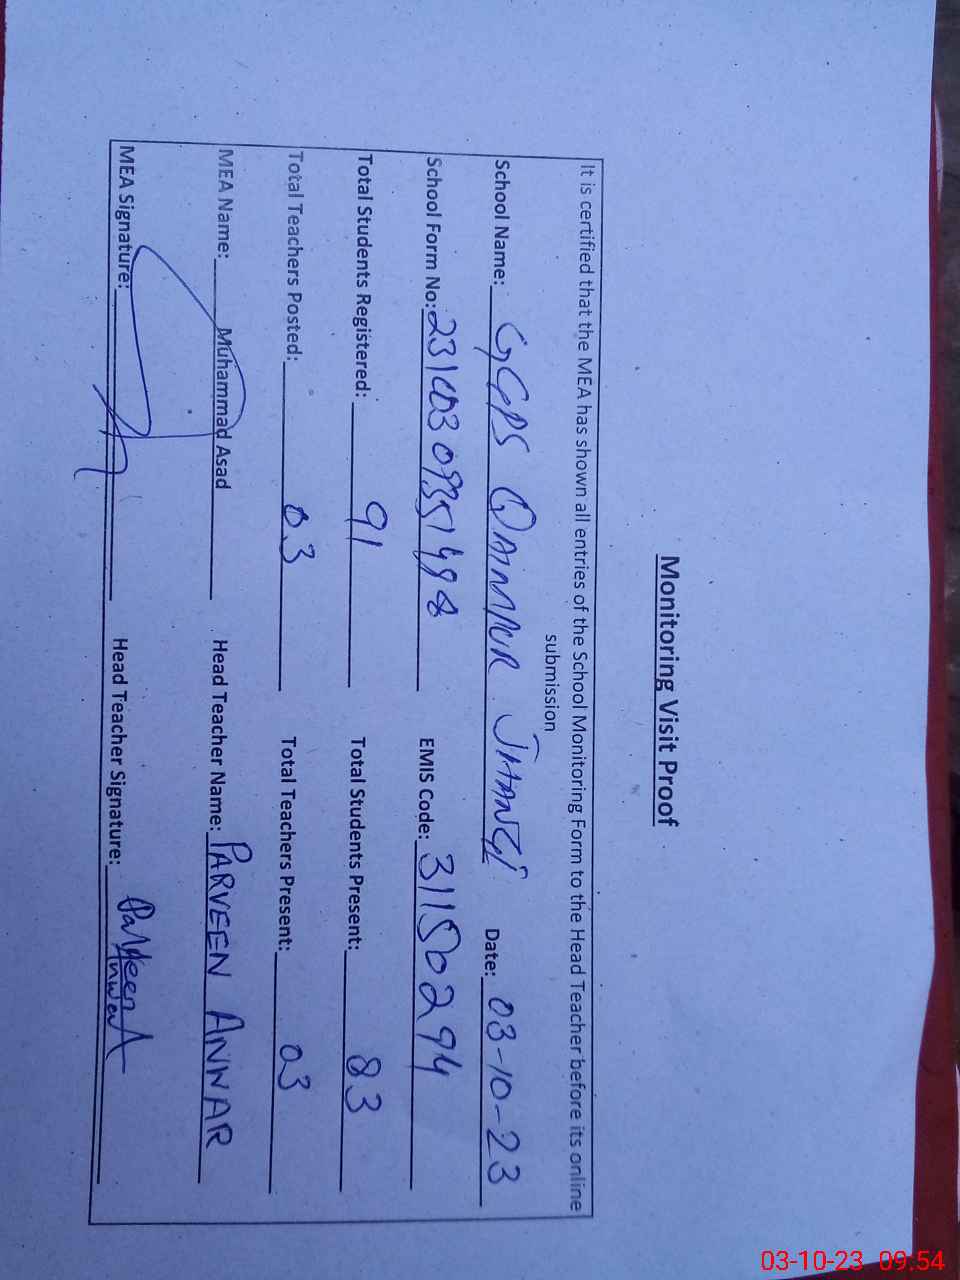 Monitoring Visit Proof
It is certified that the MEA has shown all entries of the School Monitoring Form to the Head Teacher before its online
submission
School Name: GGPS QAIMPUR JHANGI Date: 03-10-23
School Form No: EMIS Code: 31150294
Total Students Registered: 91 Total Students Present: 83
Total Teachers Posted: 03 Total Teachers Present: 03
MEA Name: Muhammad Asad Head Teacher Name: PARVEEN ANWAR
MEA Signature: Head Teacher Signature: Parveen Anwar
03-10-23 09:54